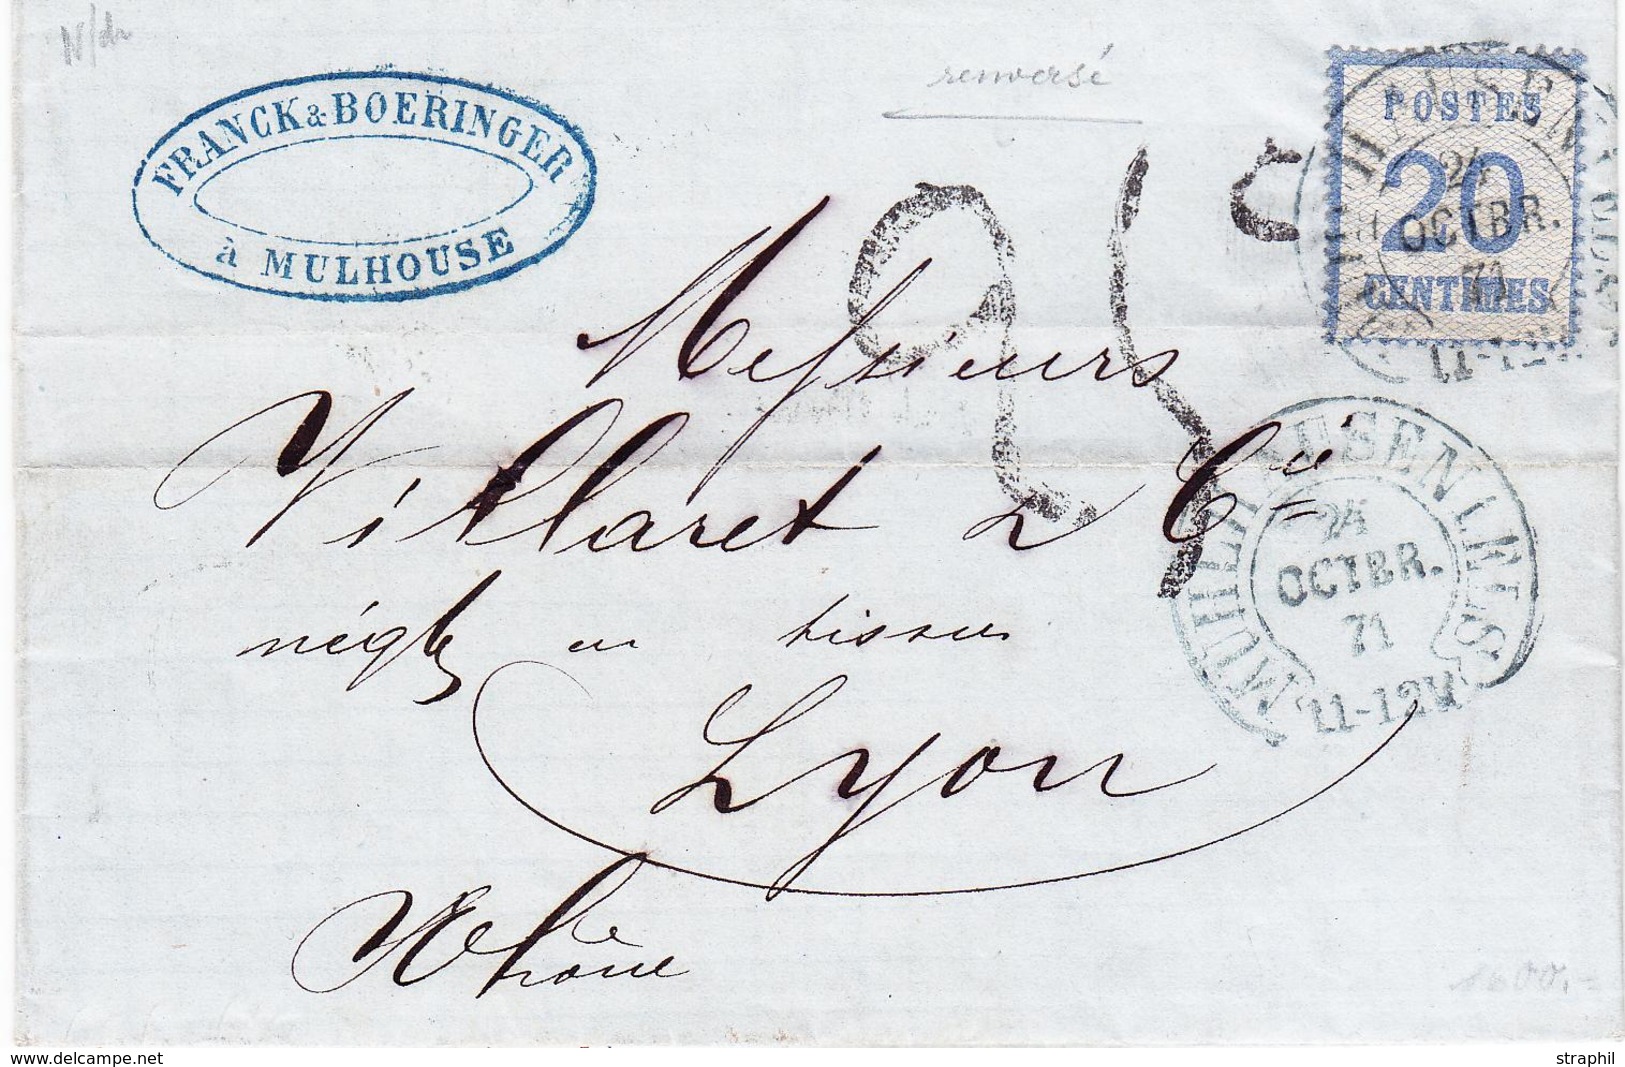 renversé
FRANCK & BOERINGER
à MULHOUSE
POSTES
20
CENTIMES
OCTBR.
71
25
Messieurs
Villaret & Cie
négts en tissus
Lyon
Rhône
MUELHAUSEN I. ELS
24
OCTBR.
71
11-12V
1000.-
www.delcampe.net
straphil